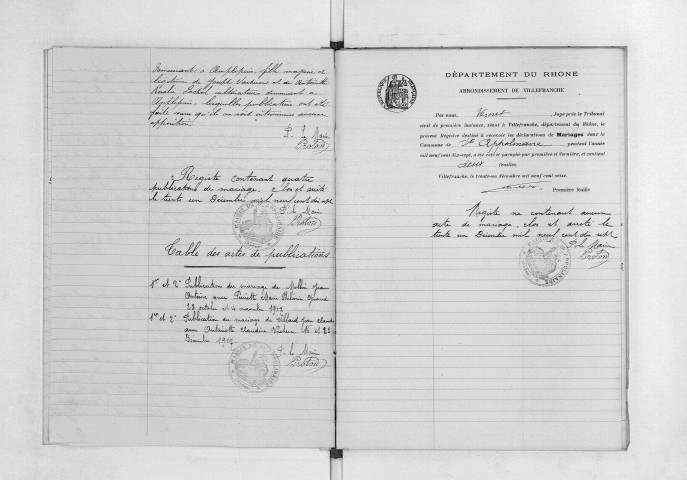 demeurant à Amplepuis, fille majeure et
légitime de Joseph Vecherin et de Antoinette
cultivateurs demeurant à
Amplepuis, lesquelles publications ont été
faite sans qu'il ne soit intervenue aucune
opposition
P. le Maire
Proton
Registre contenant quatre
publications de mariage. Clos et arrêté
le trente un Décembre mil neuf cent dix sept
P. le Maire
Proton
Table des actes de publications
1re et 2e Publication du mariage de Jean
Antoine avec Pierrette Marie
28 octobre et 4 novembre 1917
1re et 2e Publication du mariage de Billard Jean Claude
avec Antoinette Claudine 16 et 23
Décembre 1917
P. le Maire
Proton
DÉPARTEMENT DU RHONE
ARRONDISSEMENT DE VILLEFRANCHE
Par nous, Juge près le Tribunal
civil de première instance, séant à Villefranche, département du Rhône, le
présent Registre destiné à recevoir les déclarations de Mariages dans la
Commune de St Appolinaire pendant l'année
mil neuf cent dix-sept, a été coté et paraphé par première et dernière, et contient
deux feuilles.
Villefranche, le trente-un décembre mil neuf cent seize.
Première feuille
Registre ne contenant aucun
acte de mariage, clos et arrêté le
trente un Décembre mil neuf cent dix sept
P. le Maire
Proton